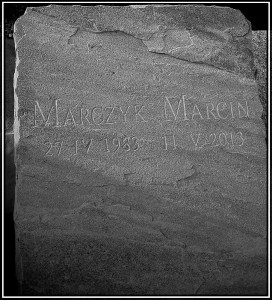 MARCZYK MARCIN
37 IV 1963 – 11 V 2013